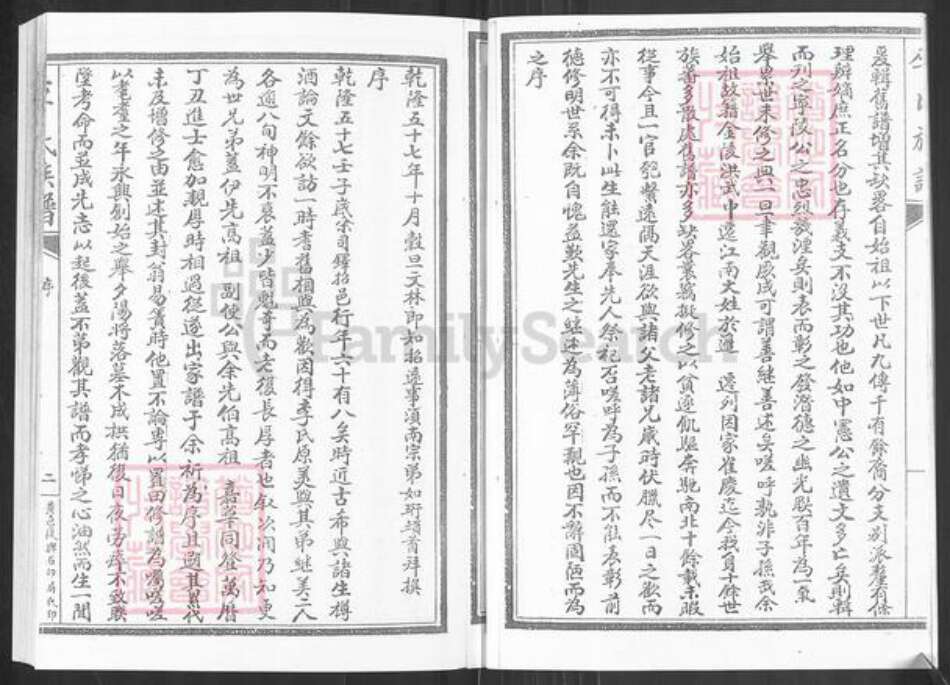 爰輯舊譜增其缺畧自始祖以下世凡九傳千有餘裔分支別派釐有條
理辨嫡庶正名分也存義支不沒其功也他如中憲公之遺文多亡矣則輯
而列之寧陵公之忠烈就湮矣則表而彰之發潛德之幽光歇百年為一氣
舉累世未修之典一旦聿觀厥成可謂善繼善述矣嗟呼孰非子孫哉余
始祖故籍金陵洪武中遷江南大姓於邊 遂列因家雀慶迄今我身十餘世
族蕃多散處舊譜亦多缺畧曩竊擬修之以貧逐飢驅奔馳南北十餘載未暇
從事今且一官匏繫遠隔天涯欲與諸父老諸兄歲時伏臘尽一日之歡而
亦不可得未卜此生能還家奉先人祭祀否嗟呼為子孫而不能表彰前
德修明世系余既自愧益歎先生之 為薄俗罕覯也因不辭固陋而為
之序
乾隆五十七年十月穀旦文林郎知 遠事濵南宗弟如珩頓首拜撰
序
乾隆五十七壬子歲余司鐸招邑行年六十有八矣時近古希與諸生樽
酒論文餘欲訪一時耆舊相與為歡因得李氏原美與其弟繼美二人
各適八旬神明不衰蓋少皆魁奇而老復長厚者也叙次間乃知更
為世兄弟蓋伊先高祖 副使公與余先伯高祖 嘉 同登萬曆
丁丑進士愈加親厚時相過從遂出家譜于余祈為序且述其累代
未及增修之由並述其封翁易簀時他置不論專以置田修譜為囑嗟嗟
以耄耋之年永興創始之舉夕陽將落墓木成拱猶復日夜勞瘁不敢墜
隆考命而並成先志以起後蓋不第觀其譜而孝悌之心油然而生一閒
氏族譜
序
二
黄邑後 石印局代印
氏族譜
FamilySearch